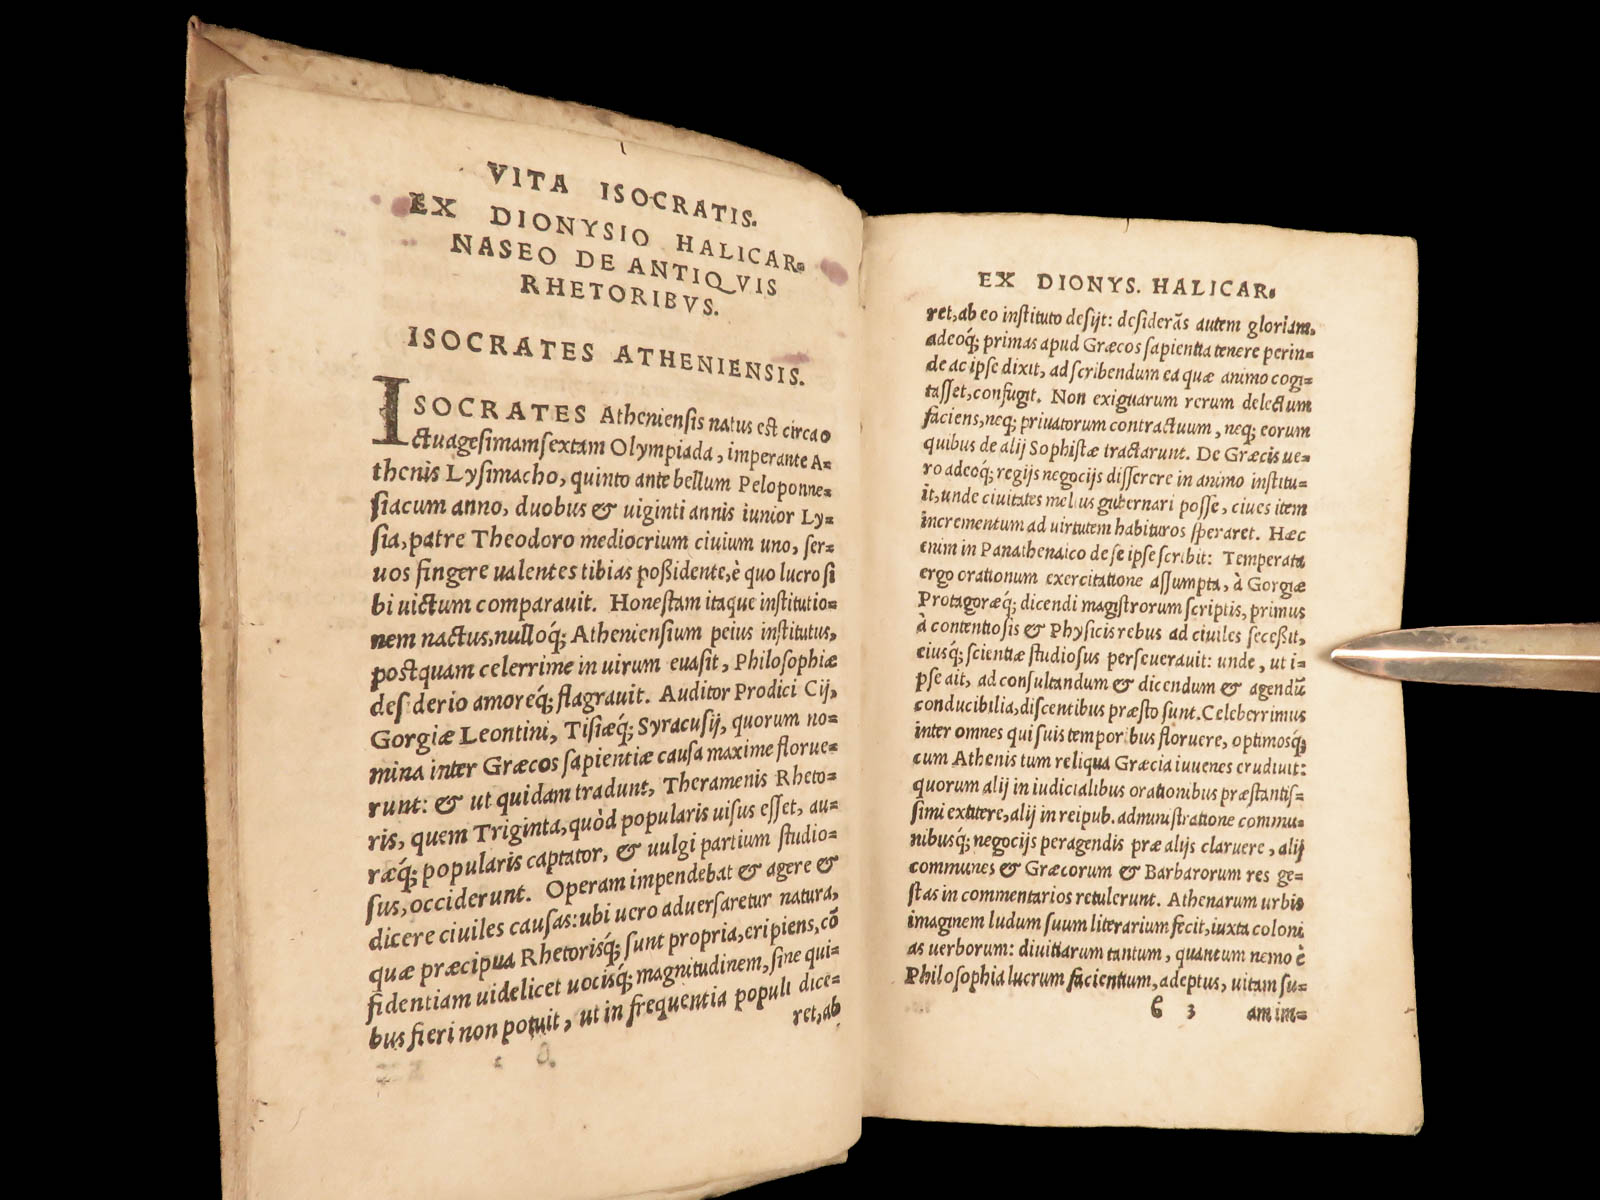 VITA ISOCRATIS.
EX DIONYSIO HALICAR-
NASEO DE ANTIQVIS
RHETORIBVS.
ISOCRATES ATHENIENSIS.
ISOCRATES Atheniensis natus est circa o
ctuagesimamsextam Olympiada, imperante A-
thenis Lysimacho, quinto ante bellum Peloponne-
siacum anno, duobus & uiginti annis iunior Ly-
sia, patre Theodoro mediocrium ciuium uno, ser-
uos fingere ualentes tibias poßidente, è quo lucro si
bi uictum comparauit. Honestam itaque institutio-
nem nactus, nulloq́; Atheniensium peius institutus,
postquam celerrime in uirum euasit, Philosophiæ
desiderio amoreq́; flagrauit. Auditor Prodici Cij,
Gorgiæ Leontini, Tisiæq́; Syracusij, quorum no-
mina inter Græcos sapientiæ causa maxime florue-
runt: & ut quidam tradunt, Theramenis Rheto-
ris, quem Triginta, quòd popularis uisus esset, au-
ræq́; popularis captator, & uulgi partium studio-
sus, occiderunt. Operam impendebat & agere &
dicere ciuiles causas: ubi uero aduersaretur natura,
quæ præcipua Rhetorisq́; sunt propria, eripiens, cō
fidentiam uidelicet uocisq́; magnitudinem, sine qui-
bus fieri non potuit, ut in frequentia populi dice-
ret, ab
EX DIONYS. HALICAR.
ret, ab eo instituto desijt: desiderās autem gloriam,
adeoq́; primas apud Græcos sapientia tenere perin-
de ac ipse dixit, ad scribendum ea quæ animo cogi-
tasset, confugit. Non exiguarum rerum delectum
faciens, neq; priuatorum contractuum, neq; eorum
quibus de alij Sophistæ tractarunt. De Græcis ue-
ro adeoq́; regijs negocijs disserere in animo institu-
it, unde ciuitates melius gubernari posse, ciues item
incrementum ad uirtutem habituros speraret. Hæc
enim in Panathenaico de se ipse scribit: Temperata
ergo orationum exercitatione assumpta, à Gorgiæ
Protagoræq́; dicendi magistrorum scriptis, primus
à contentiosis & Physicis rebus ad ciuiles secessit,
eiusq́; scientiæ studiosus perseuerauit: unde, ut i-
pse ait, ad consultandum & dicendum & agendū
conducibilia, discentibus præsto sunt. Celeberrimus
inter omnes qui suis temporibus floruere, optimosq́;
cum Athenis tum reliqua Græcia iuuenes erudiuit:
quorum alij in iudicialibus orationibus præstantis-
simi extitere, alij in reipub. administratione commu-
nibusq́; negocijs peragendis præ alijs claruere, alij
communes & Græcorum & Barbarorum res ge-
stas in commentarios retulerunt. Athenarum urbis
imaginem ludum suum literarium fecit, iuxta coloni
as uerborum: diuitiarum tantum, quantum nemo è
Philosophia lucrum facientium, adeptus, uitam su-
6 3 am im-